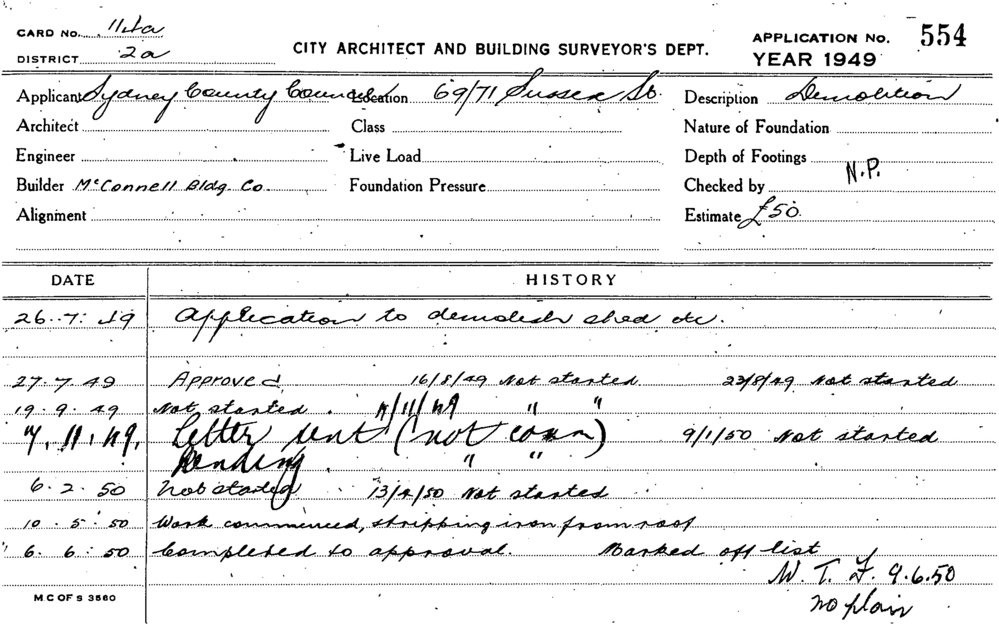 CARD No. 114a
DISTRICT 2a
CITY ARCHITECT AND BUILDING SURVEYOR'S DEPT.
APPLICATION No. 554
YEAR 1949
Applicant Sydney County Council Location 69/71 Sussex St. Description Demolition
Architect Class Nature of Foundation
Engineer Live Load Depth of Footings
Builder McConnell Bldg. Co. Foundation Pressure Checked by N.P.
Alignment Estimate £50.
DATE HISTORY
26.7.49 Application to demolish shed etc.
27.7.49 Approved 16/8/49 Not started 23/8/49 Not started
19.9.49 Not started. /11/49 " "
7.11.49. Letter sent (not comm) 9/1/50 Not started
Pending. " "
6.2.50 Not started 13/4/50 Not started
10.5.50 Work commenced, stripping iron from roof
6.6.50 Completed to approval. Marked off list
W.T.F. 9.6.50
no plan
M C OF S 3560